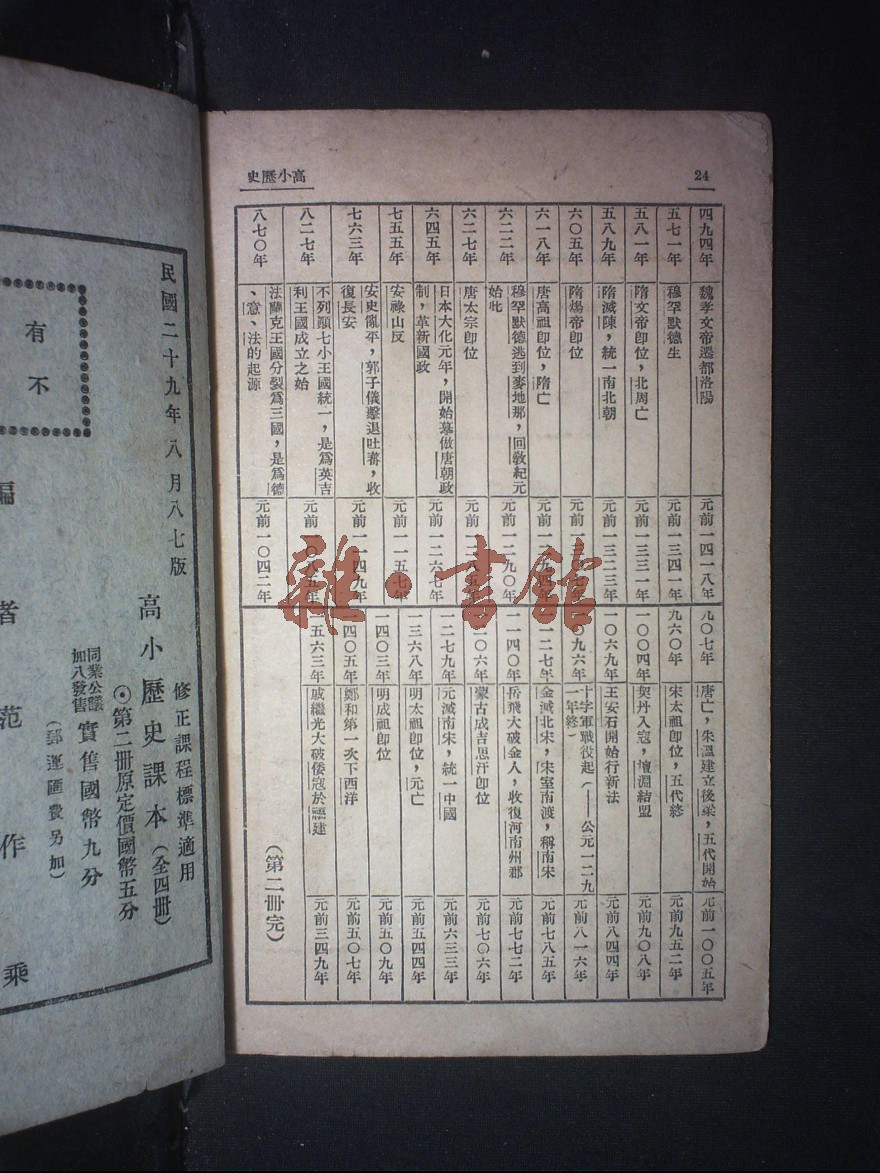 高小歷史
24
四九四年 魏孝文帝遷都洛陽 元前一四一八年
五七一年 穆罕默德生 元前一三四一年
五八一年 隋文帝卽位，北周亡 元前一三三一年
五八九年 隋滅陳，統一南北朝 元前一三二三年
六〇五年 隋煬帝卽位 元前一三〇七年
六一八年 唐高祖卽位，隋亡 元前一二九四年
六二二年 穆罕默德逃到麥地那，回敎紀元
始此 元前一二九〇年
六二七年 唐太宗卽位 元前一二八五年
六四五年 日本大化元年，開始摹倣唐朝政
制，革新國政 元前一二六七年
七五五年 安祿山反 元前一一五七年
七六三年 安史亂平，郭子儀擊退吐蕃，收
復長安 元前一一四九年
八二七年 不列顚七小王國統一，是爲英吉
利王國成立之始 元前一〇八五年
八七〇年 法蘭克王國分裂爲三國，是爲德
、意、法的起源 元前一〇四二年
九〇七年 唐亡，朱溫建立後梁，五代開始 元前一〇〇五年
九六〇年 宋太祖卽位，五代終 元前九五二年
一〇〇四年 契丹入寇，壇淵結盟 元前九〇八年
一〇六九年 王安石開始行新法 元前八四四年
一〇九六年 十字軍戰役起（— 公元一二九
一年終） 元前八一六年
一一二七年 金滅北宋，宋室南渡，稱南宋 元前七八五年
一一四〇年 岳飛大破金人，收復河南州郡 元前七七二年
一二〇六年 蒙古成吉思汗卽位 元前七〇六年
一二七九年 元滅南宋，統一中國 元前六三三年
一三六八年 明太祖卽位，元亡 元前五四四年
一四〇三年 明成祖卽位 元前五〇九年
一四〇五年 鄭和第一次下西洋 元前五〇七年
一五六三年 戚繼光大破倭寇於福建 元前三四九年
（第二册完）
雜·書館
修正課程標準適用
高小歷史課本（全四册）
⊙第二册原定價國幣五分
同業公議
加八發售
實售國幣九分
（郵運匯費另加）
民國二十九年八月八七版
有
不
編者范作乘